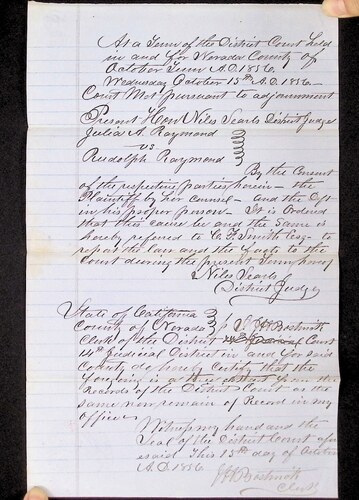 At a Term of the District Court held
in and for Nevada County of
October Term A.D. 1856
Wednesday October 15th A.D. 1856
Court Met pursuant to adjournment
Present Hon Niles Searls District Judge
Julia A. Raymond
vs
Rudolph Raymond
By the Consent
of the respective parties herein - the
Plaintiff by her counsel - and the Deft
in his proper person - It is Ordered
that this cause be and the same is
hereby referred to C. F. Smith Esq. to
report the law and the facts to the
Court during the present Term hereof
Niles Searls
District Judge
State of California
County of Nevada
Clerk of the District Court
14th Judicial District in and for said
County do hereby Certify that the
foregoing is a true abstract from the
Records of the District Court as the
same now remain of Record in my
office
Witness my hand and the
Seal of the District Court afore
said This 15th day of October
A.D. 1856
Clerk